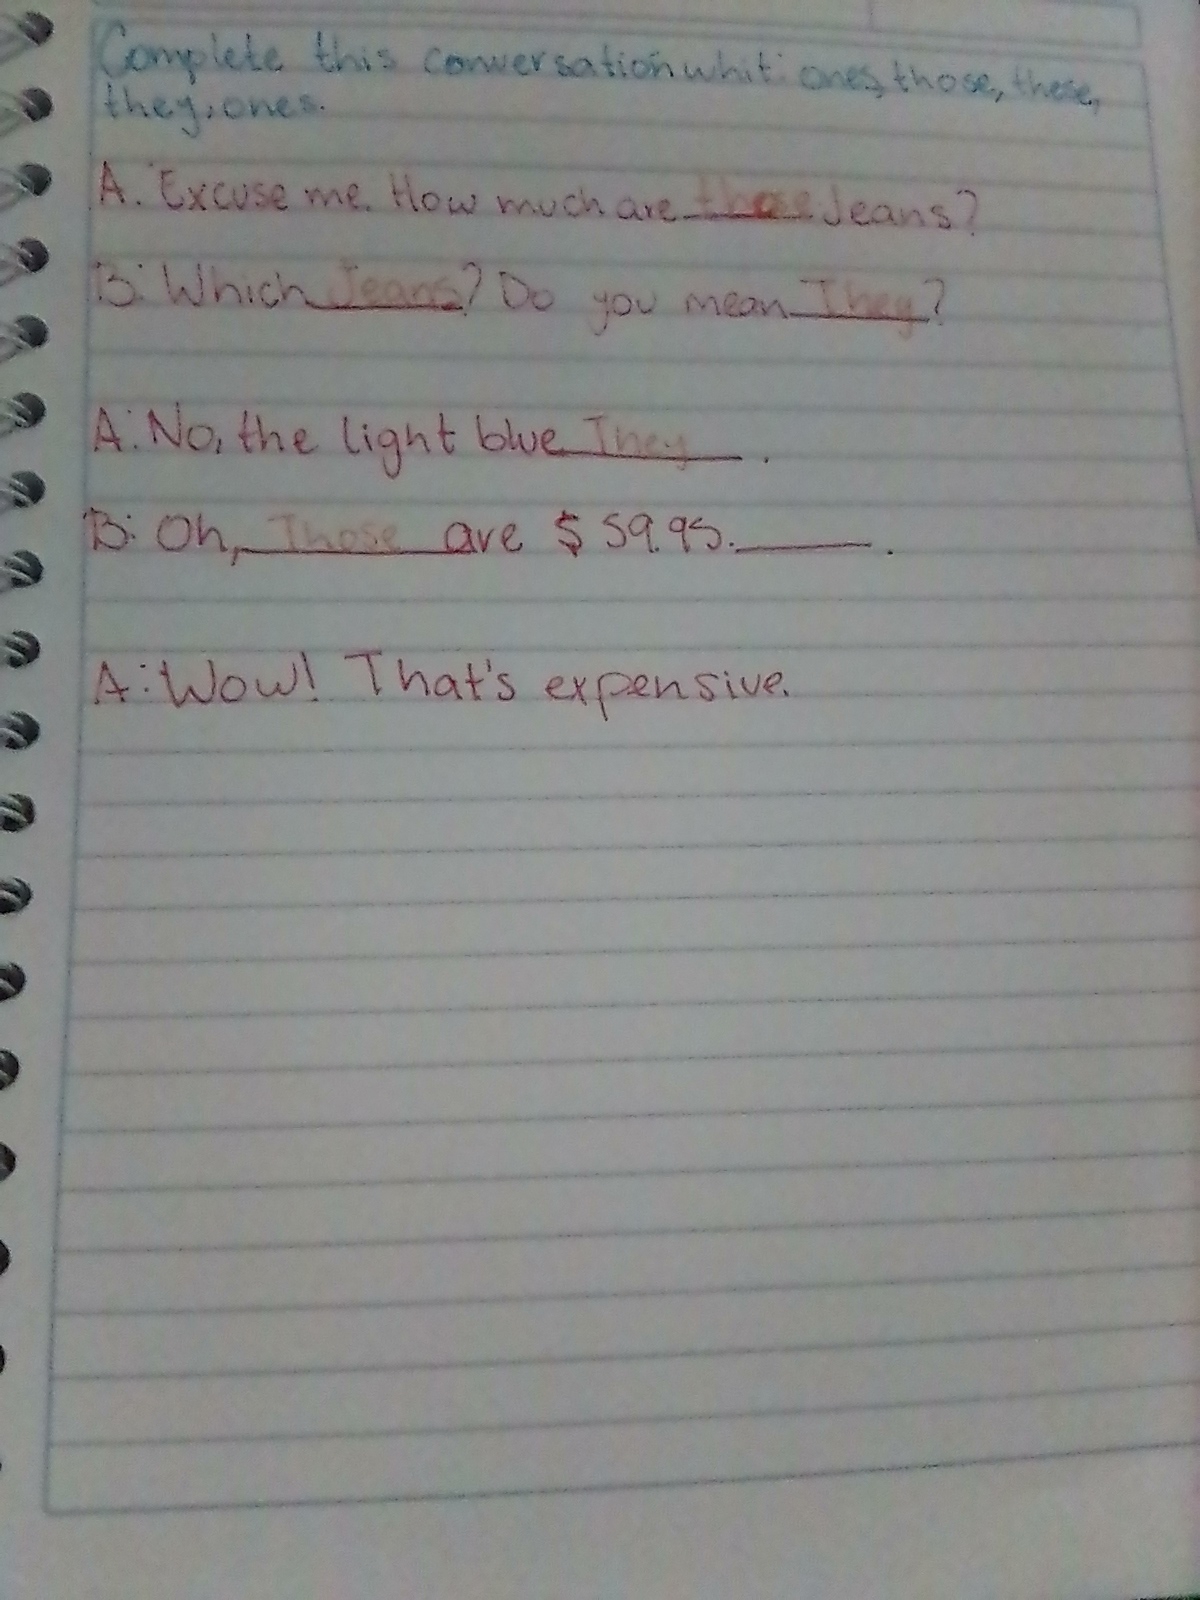 Complete this conversation whit: ones, those, these,
they, ones.
A. Excuse me. How much are those Jeans?
B: Which Jeans? Do you mean They?
A: No, the light blue They.
B: Oh, Those are $ 59.95. ______.
A: Wow! That's expensive.